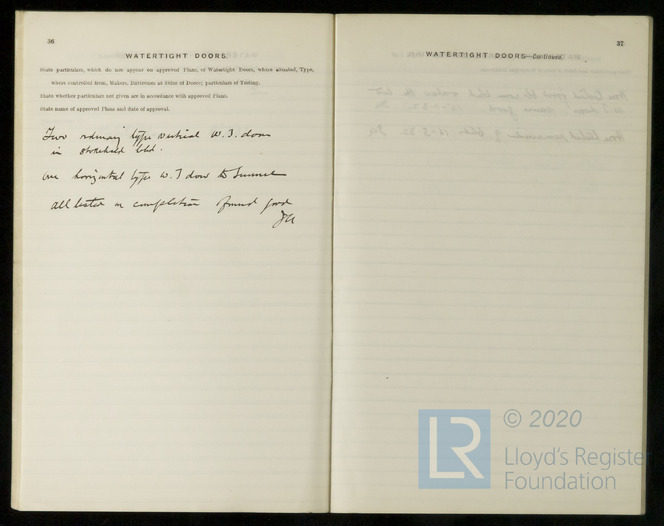 36
WATERTIGHT DOORS.
State particulars, which do not appear on approved Plans, of Watertight Doors, where situated, Type,
where controlled from, Makers, Thicknesses at Sides of Doors; particulars of Testing.
State whether particulars not given are in accordance with approved Plans.
State name of approved Plans and date of approval.
Two ordinary type vertical W.T. doors
in stokehold bhd.
one horizontal type W.T door to Tunnel
all tested on completion found good
37
WATERTIGHT DOORS—Continued.
LR
© 2020
Lloyd's Register
Foundation